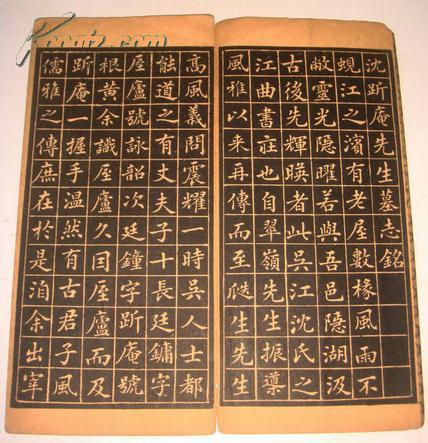 沈斦庵先生墓志銘
蜆江之濱有老屋數椽風雨不
敝靈光隱曜若與吾邑隱湖汲
古後先輝暎者此吳江沈氏之
江曲書莊也自翠嶺先生振藻
風雅以来再傳而至瓞生先生
高風義問震耀一時吳人士都
能道之有丈夫子十長廷鏞字
屋廬號詠韶次廷鐘字斦庵號
根黃余識屋廬久因屋廬而及
斦庵一握手温然有古君子風
儒雅之傳庶在於是洎余出宰